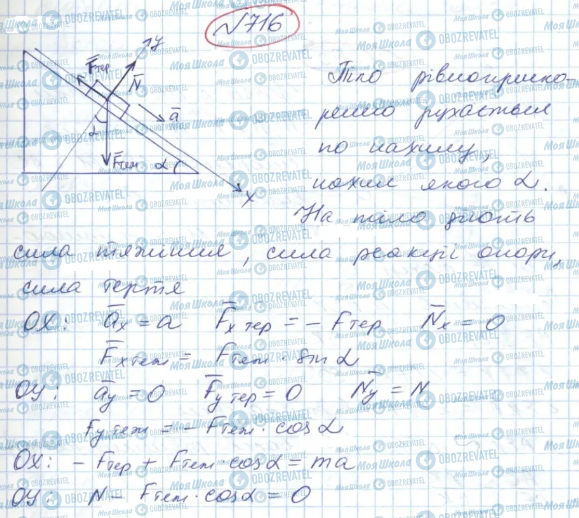 №716
y
F̄тер
N̄
ā
α
F̄тяж α
x
Тіло рівноприско-
рено рухається
по нахилу,
нахил якого α.
На тіло діють
сила тяжіння, сила реакції опори,
сила тертя
OX: āx = a F̄x тер = - Fтер N̄x = 0
F̄x тяж = Fтяж · sin α
OY: āy = 0 F̄y тер = 0 N̄y = N
Fy тяж = - Fтяж · cos α
OX: - Fтер + Fтяж · cos α = ma
OY: N - Fтяж · cos α = 0